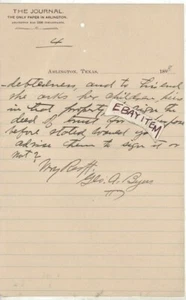 THE JOURNAL.
THE ONLY PAPER IN ARLINGTON.
4
ARLINGTON, TEXAS, 189
debtedness, and to this end
she asks her children
in that property, to sign the
deed of trust
EBAY ITEM
before stated, would you
advise them to sign it or
not?
Very Respt
Geo. A. Byers